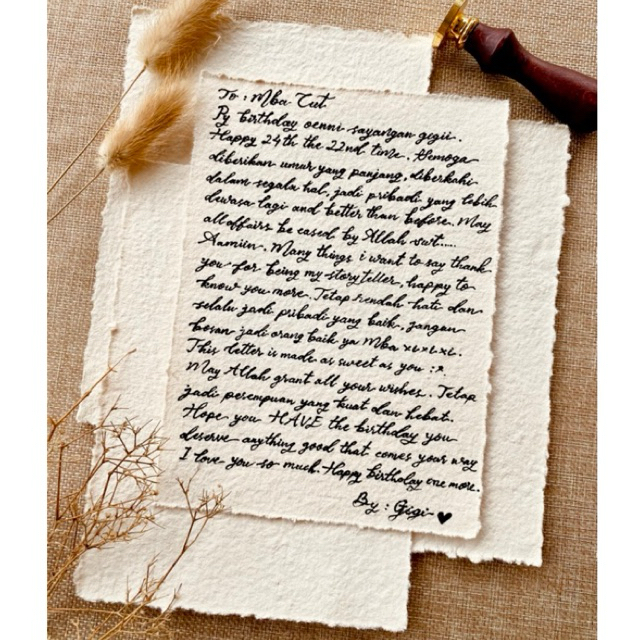 To : Mba Cut
Py birthday oenni sayangan gigii.
Happy 24th the 22nd time. Semoga
diberikan umur yang panjang, diberkahi
dalam segala hal, jadi pribadi yang lebih
dewasa lagi and better than before. May
all affairs be eased by Allah swt.....
Aamiin. Many things i want to say thank
you for being my storyteller, happy to
know you more. Tetap rendah hati dan
selalu jadi pribadi yang baik, jangan
bosan jadi orang baik ya Mba xixixixi.
This letter is made as sweet as you :*.
May Allah grant all your wishes. Tetap
jadi perempuan yang kuat dan hebat.
Hope you HAVE the birthday you
deserve anything good that comes your way
I love you so much. Happy birthday one more.
By : Gigi ♥